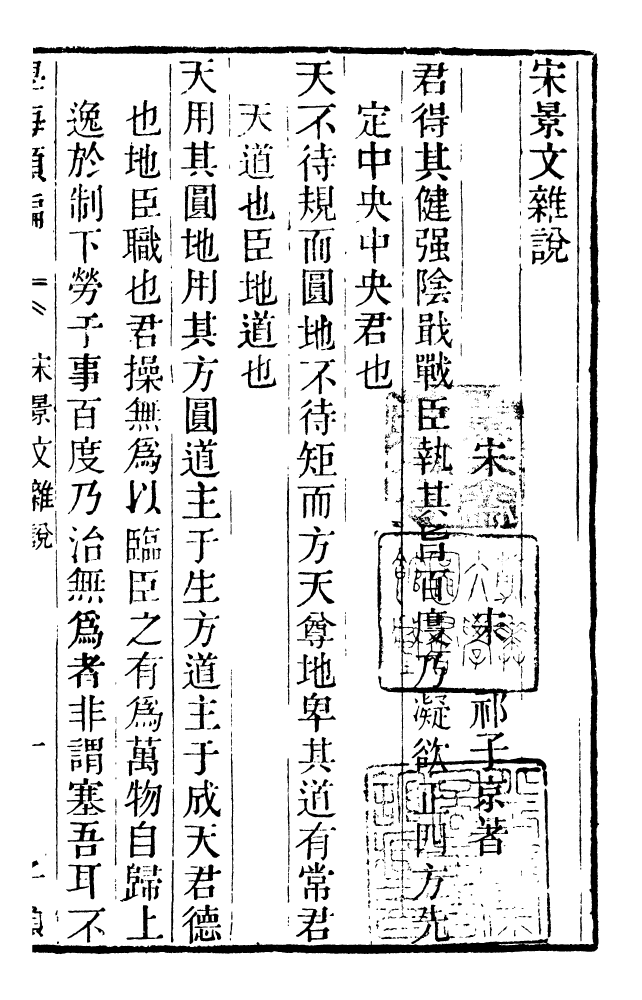 宋景文雜說
宋　宋　祁子京著
君得其健强陰戢戰臣執其旨百度乃凝欲正四方先
定中央中央君也
天不待規而圓地不待矩而方天尊地卑其道有常君
天道也臣地道也
天用其圓地用其方圓道主于生方道主于成天君德
也地臣職也君操無爲以臨臣之有爲萬物自歸上
逸於制下勞于事百度乃治無爲者非謂塞吾耳不
學海類編
宋景文雜說
一